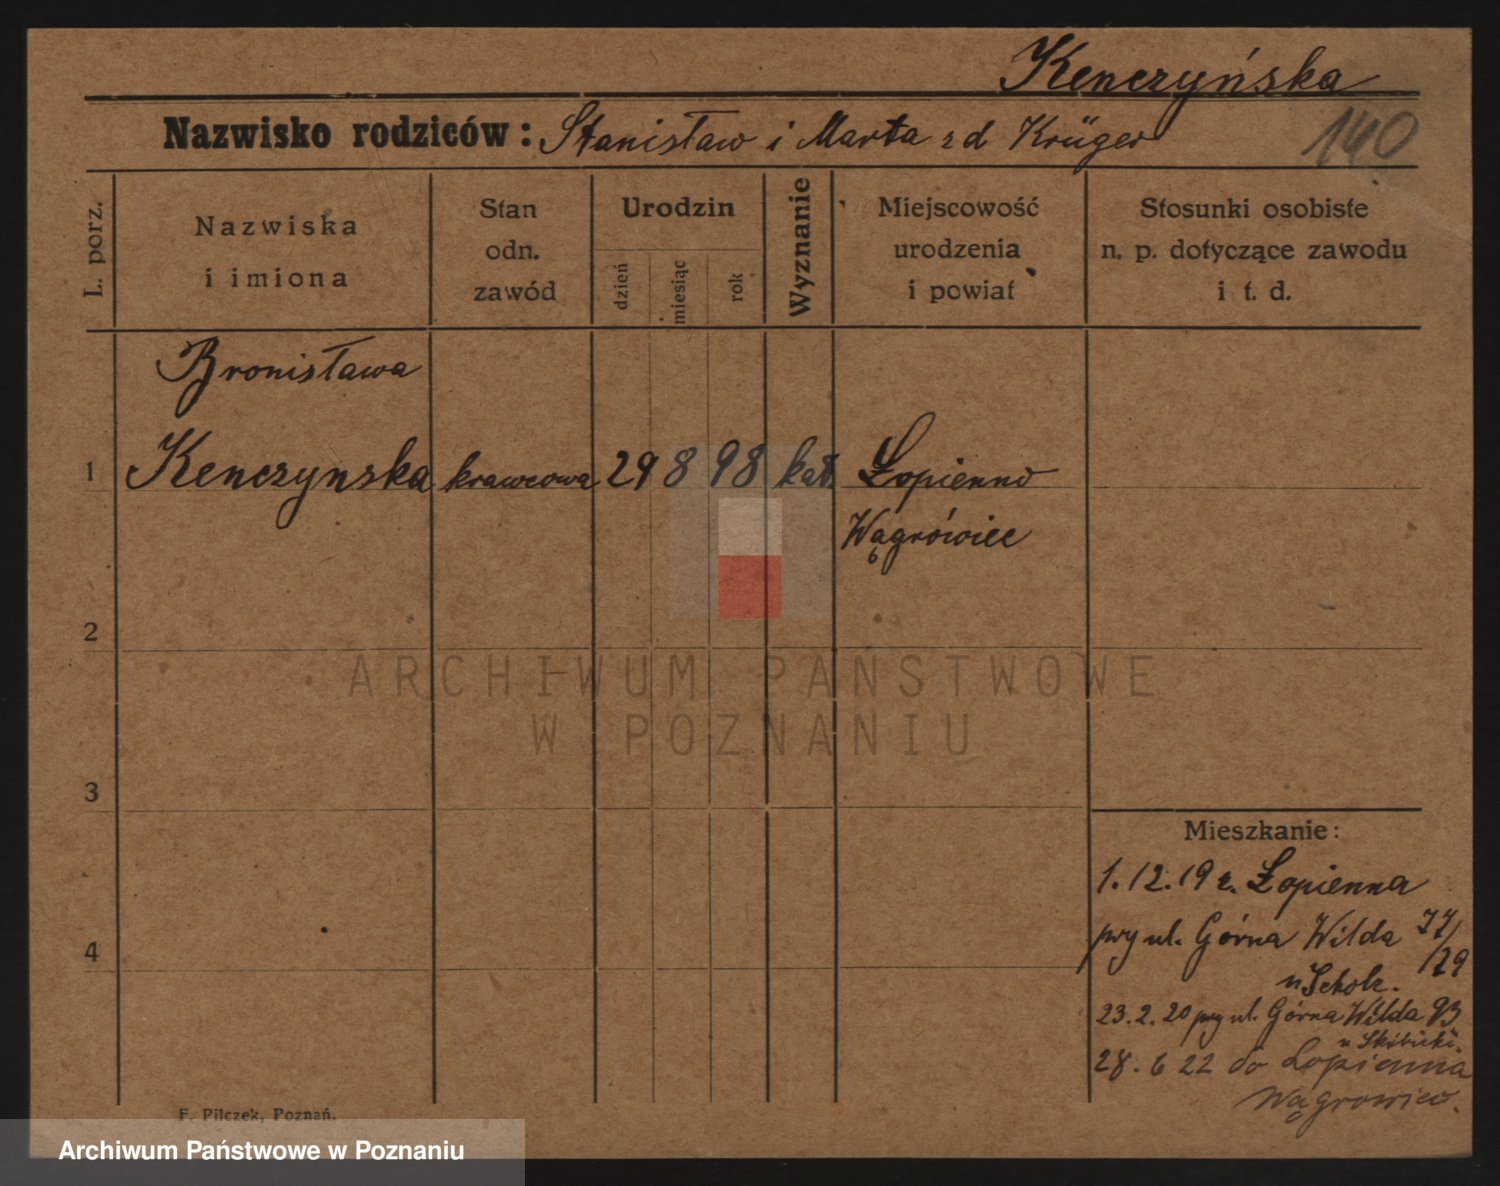 Kenczyńska
Nazwisko rodziców: Stanisław i Marta z d Krüger
140
L. porz.
Nazwiska
i imiona
Stan
odn.
zawód
Urodzin
dzień
miesiąc
rok
Wyznanie
Miejscowość
urodzenia
i powiat
Stosunki osobiste
n. p. dotyczące zawodu
i t. d.
Bronisława
1 Kenczynska krawcowa 29 8 98 kat. Łopienno
Wągrówiec
2
ARCHIWUM PAŃSTWOWE
W POZNANIU
3
Mieszkanie:
1.12.19 r. Łopienna
4
przy ul. Górna Wilda 77/29
u Scholz.
23.2.20 przy ul. Górna Wilda 93
u Skibicki.
28.6 22 do Łopienna
Wągrowiec.
F. Pilczek, Poznań.
Archiwum Państwowe w Poznaniu